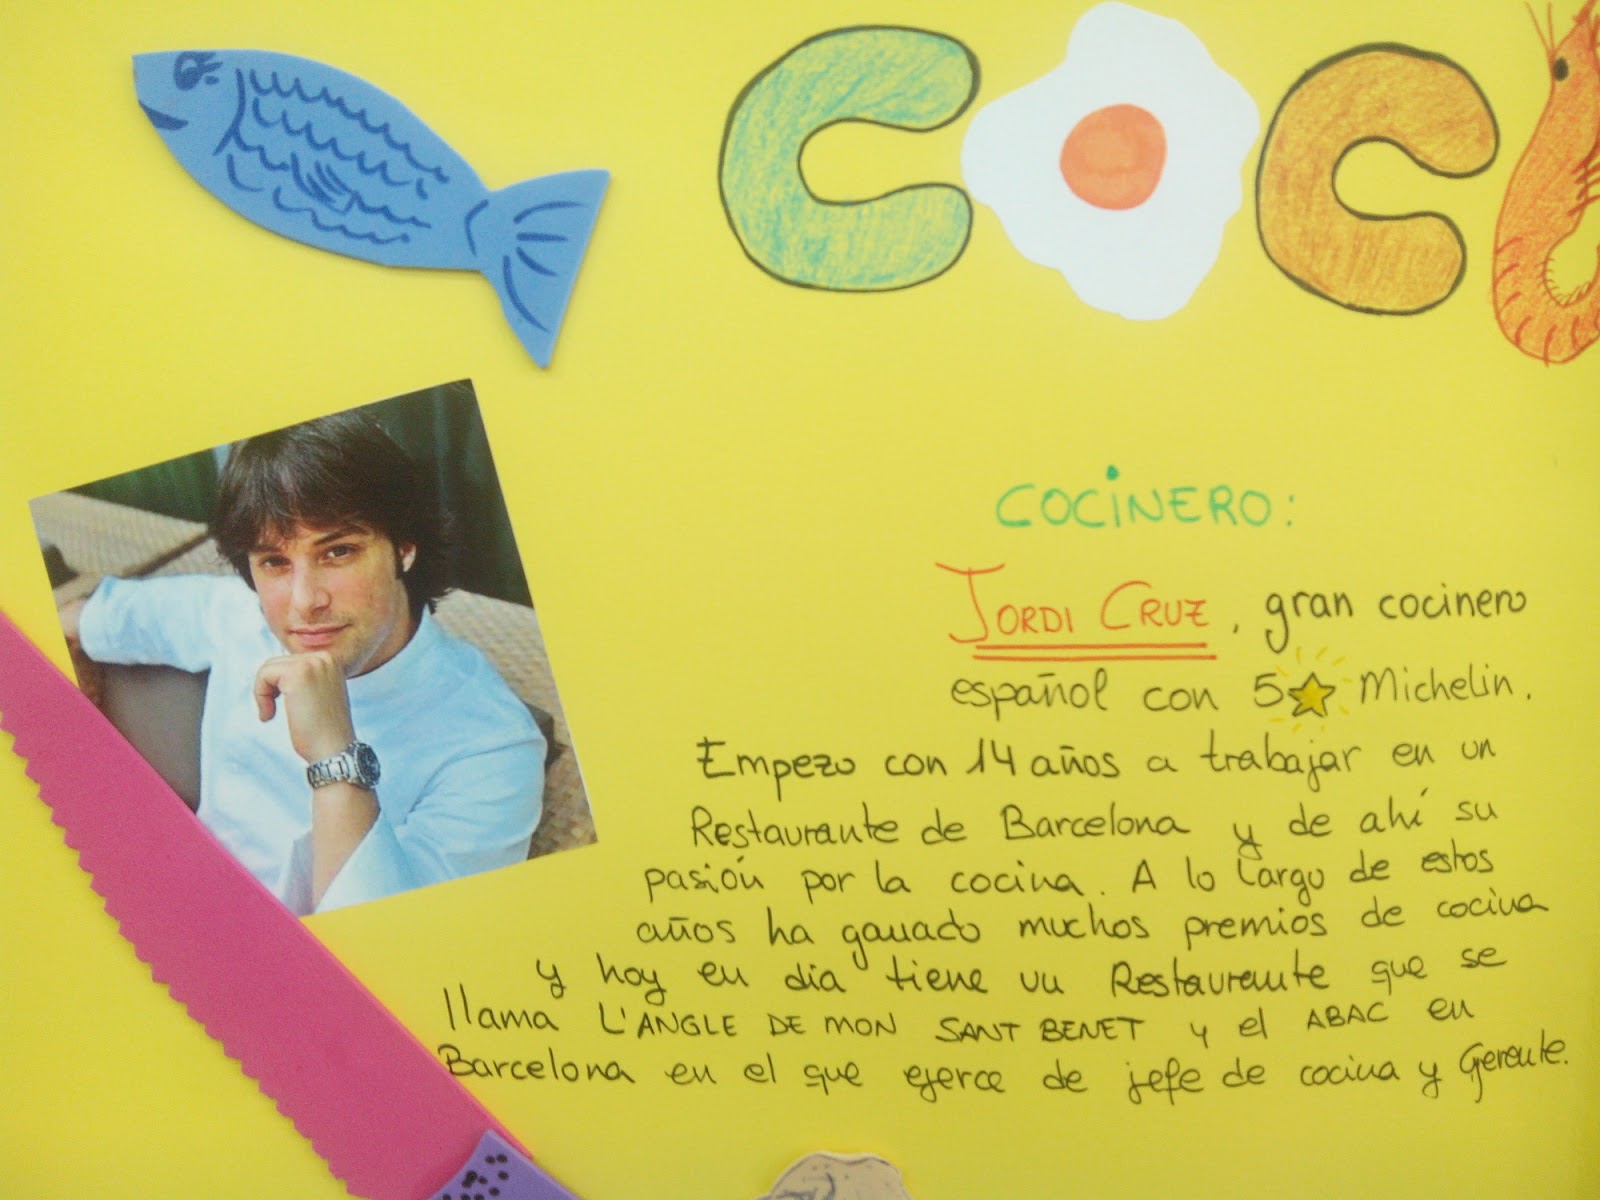 COCI
COCINERO:
JORDI CRUZ, gran cocinero
español con 5 Michelin.
Empezo con 14 años a trabajar en un
Restaurante de Barcelona y de ahí su
pasión por la cocina. A lo largo de estos
años ha ganado muchos premios de cocina
y hoy en dia tiene un Restaurante que se
llama L'ANGLE DE MON SANT BENET y el ABAC en
Barcelona en el que ejerce de jefe de cocina y Gerente.